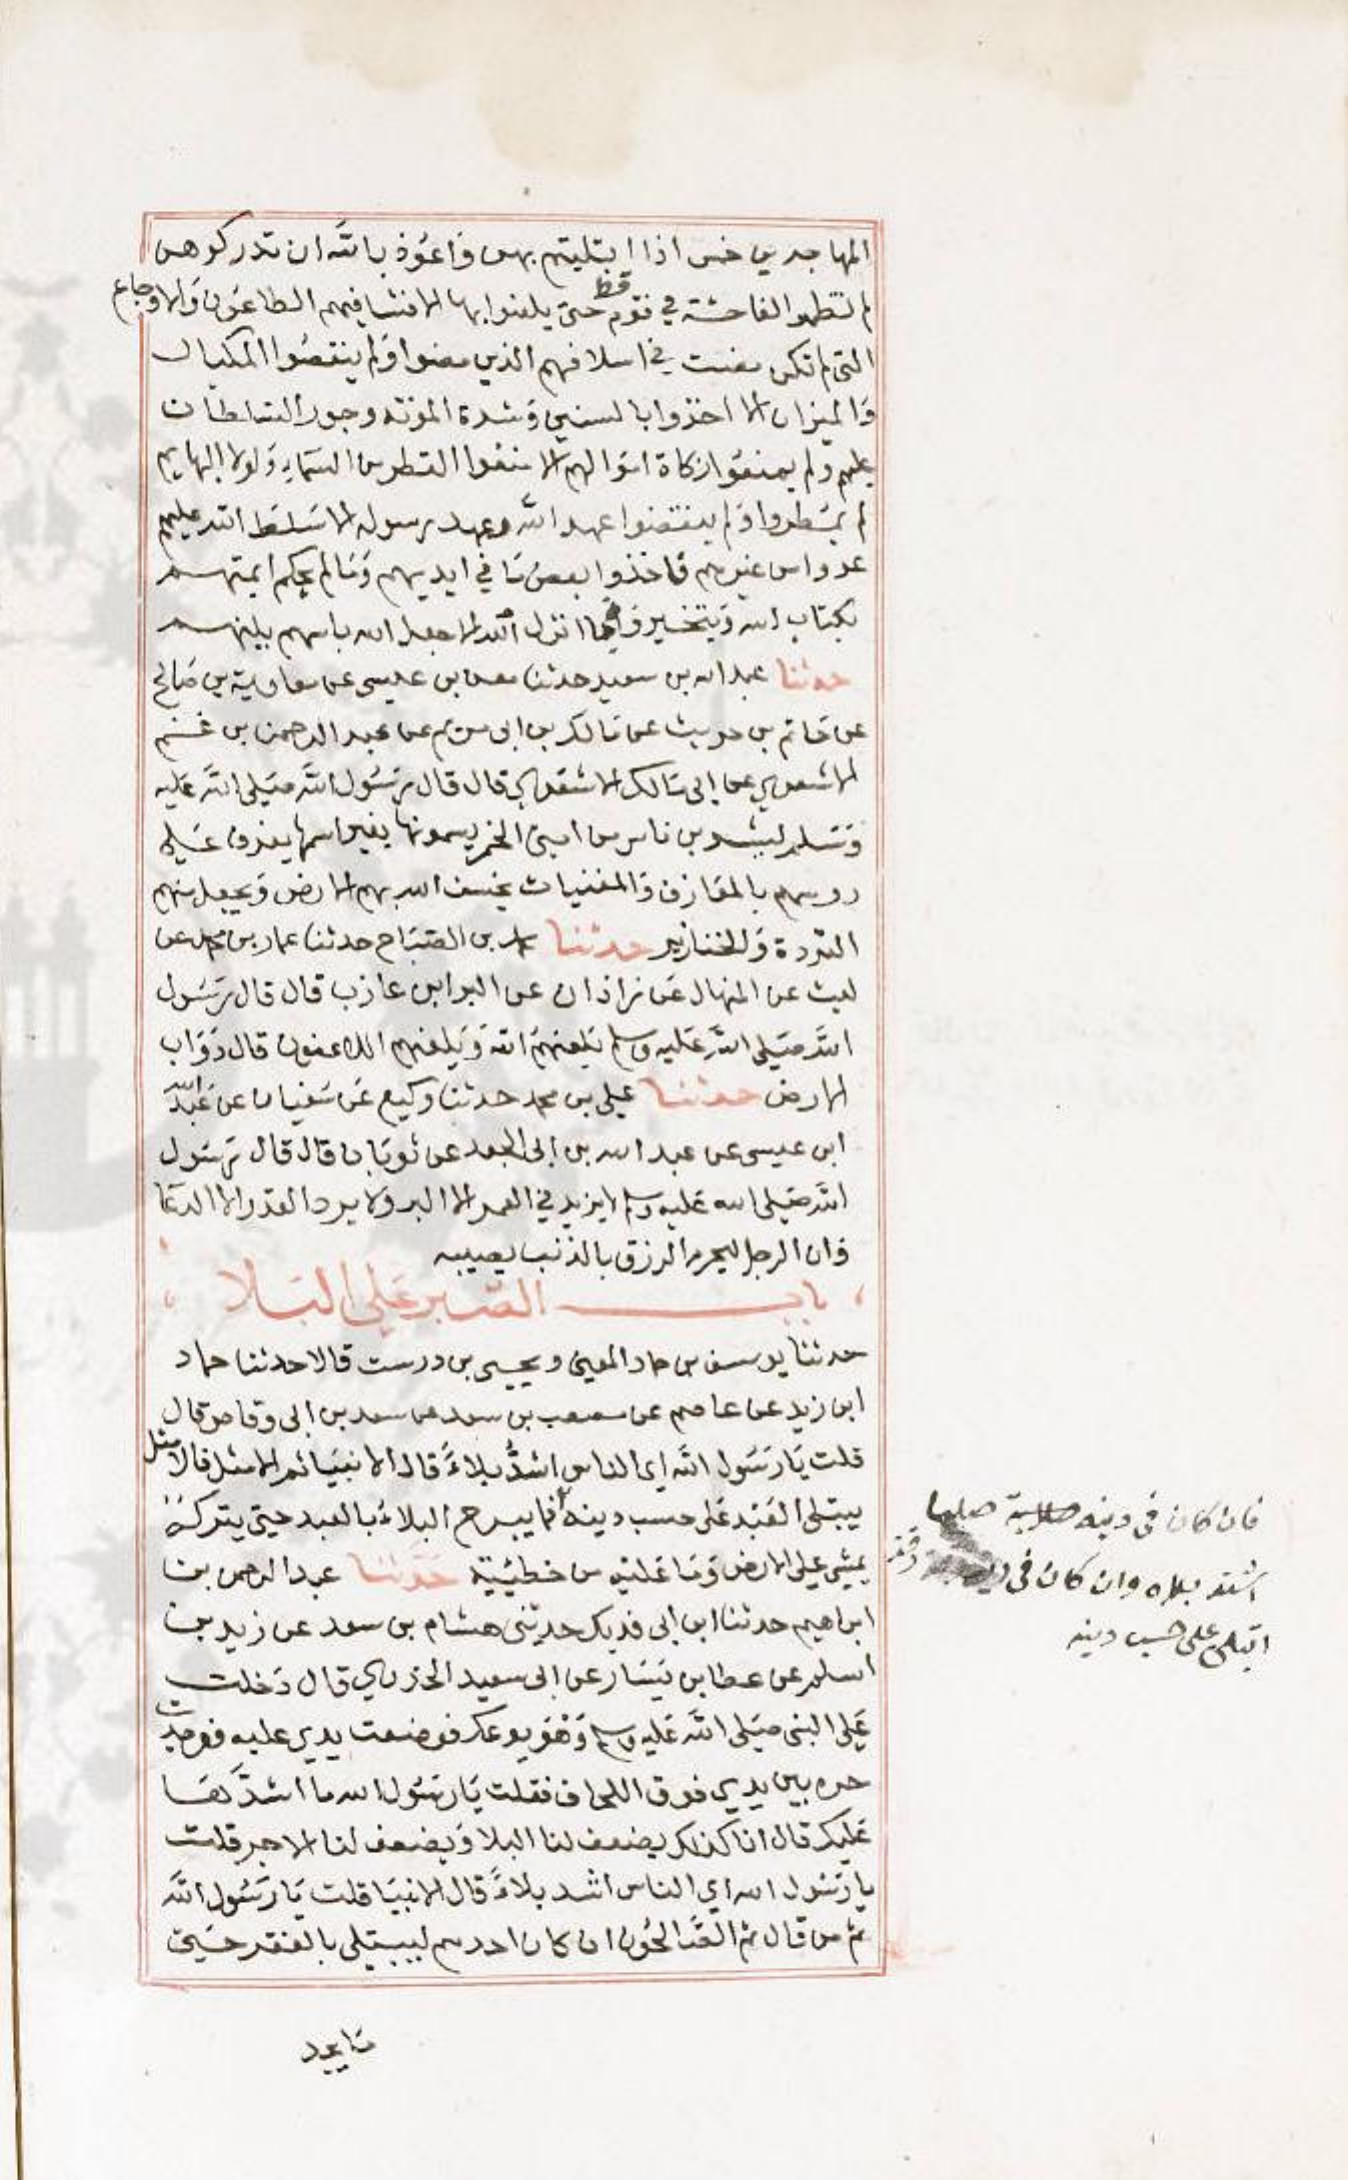 المهاجرين خمس اذا ابتليتم بهن وَاعُوذ بالله ان تدركوهن
لم تظهر الفاحشة في قوم قط حتى يعلنوا بها الا فشا فيهم الطاعون وَالاوجاع
التى لم تكن مضت في اسلافهم الذين مضوا وَلم ينقصُوا المكيال
وَالميزان الا اخذوا بالسنين وَشدة المؤنه وجور السلطان
عليهم ولم يمنعوا زكاة اموَالهم الا منعوا القطر من السمَاءِ وَلولا البهايم
لم يمطروا وَلم ينقضوا عهد الله وعهد رسوله الا سَلط الله عليهم
عدوا من غيرهم فَاخذوا بعض مَا في ايديهم وَمَا لم يحكم ايمتهم
بكتاب الله وَيتخيروَا مما انزل الله الا جعل الله باسهم بينهم
حدثنا عبد الله بن سعيد حدثنا معن بن عيسى عن معاوية بن صَالح
عن حَاتم بن حريث عن مَالك بن ابى مريم عن عبد الرحمن بن غنم
الاشعري عن ابى مَالك الاشعري قال قال رسُول الله صَلى الله عَليه
وَسَلم ليشربن ناس من امتى الخمر يسمونها بغير اسمها يعزف عَلى
روسهم بالمعَازف وَالمغنيات يخسف الله بهم الارض وَيجعل منهم
القردة وَالخنازير حدثنا محمد بن الصَبَاح حدثنا عمار بن محمد عن
ليث عن المنهال عَن زاذان عن البرا بن عازب قال قال رسُول
الله صَلى الله عَليه وسلم يَلعنهمُ الله وَيَلعنهم اللاعنون قال دَوَاب
الارض حدثنا عَلي بن محمد حدثنا وكيع عَن سَفيان عن عَبد الله
ابن عيسى عن عبد الله بن ابى الجعد عن ثوبَان قال قال رسُول
الله صَلى الله عَليه وسلم لا يزيد في العمر الا البر ولا يرد القدر الا الدعَا
وَان الرجل ليحرم الرزق بالذنب يصيبه
باب الصَبر عَلى البَلا
حدثنا يوسف بن حماد المعنى ويحيى بن درست قالا حدثنا حماد
ابن زيد عن عاصم عن مصعب بن سعد عن سعد بن ابى وقاص قال
قلت يَارسُول الله اى الناس اشدُّ بلاءً قال الانبيَا ثم الامثل فالامثل
يبتلى العَبد عَلى حسب دينه فما يبرح البلاءُ بالعبد حتى يتركهُ
يمشى عَلى الارض وَمَا عَليه من خطيئة حَدثنا عبد الرحمن بن
ابراهيم حدثنا ابن ابى فديك حدثنى هشام بن سعد عن زيد بن
اسلم عن عطا بن يَسَار عن ابى سعيد الخدري قال دَخلت
عَلى النبى صَلى الله عَليه وسلم وَهوَ يوعك فوضعت يدي عليه فوجدت
حره بين يدي فوق اللحاف فقلت يَارسُول الله ما اشدَّهَا
عَليك قال انا كذلك يضعف لنا البلا وَيضعف لنا الاجر قلت
يا رَسُول الله اي الناس اشد بلاءً قال الانبيَا قلت يَا رَسُول الله
ثم من قال ثم الصَّالحُون ان كان احدهم ليبتلى بالفقر حَتى
مَا يجد
فان كان فى دينه صلابة صلبا
اشتد بلاه وان كان فى دينه رقة
ابتلى على حسب دينه